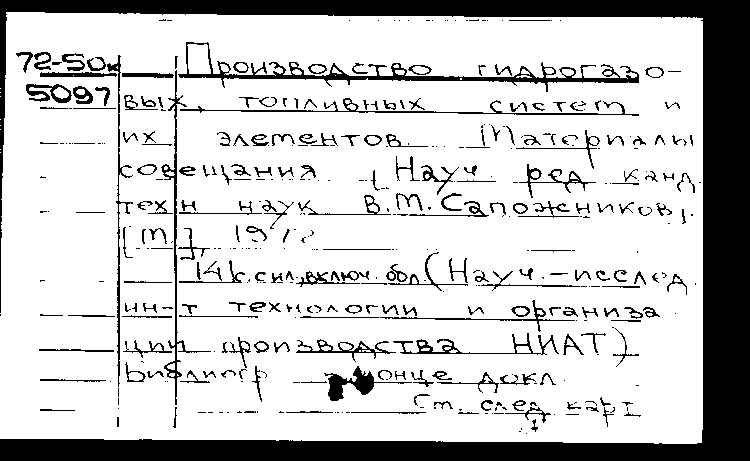 72-50к
5097
Производство гидрогазо-
вых, топливных систем и
их элементов. Материалы
совещания. [Науч. ред. канд.
техн наук В.М. Сапожников].
[М.],
с. с ил., включ. обл. (Науч.-исслед.
ин-т технологии и организа
ции производства НИАТ)
Библиогр в конце докл
См. след карт